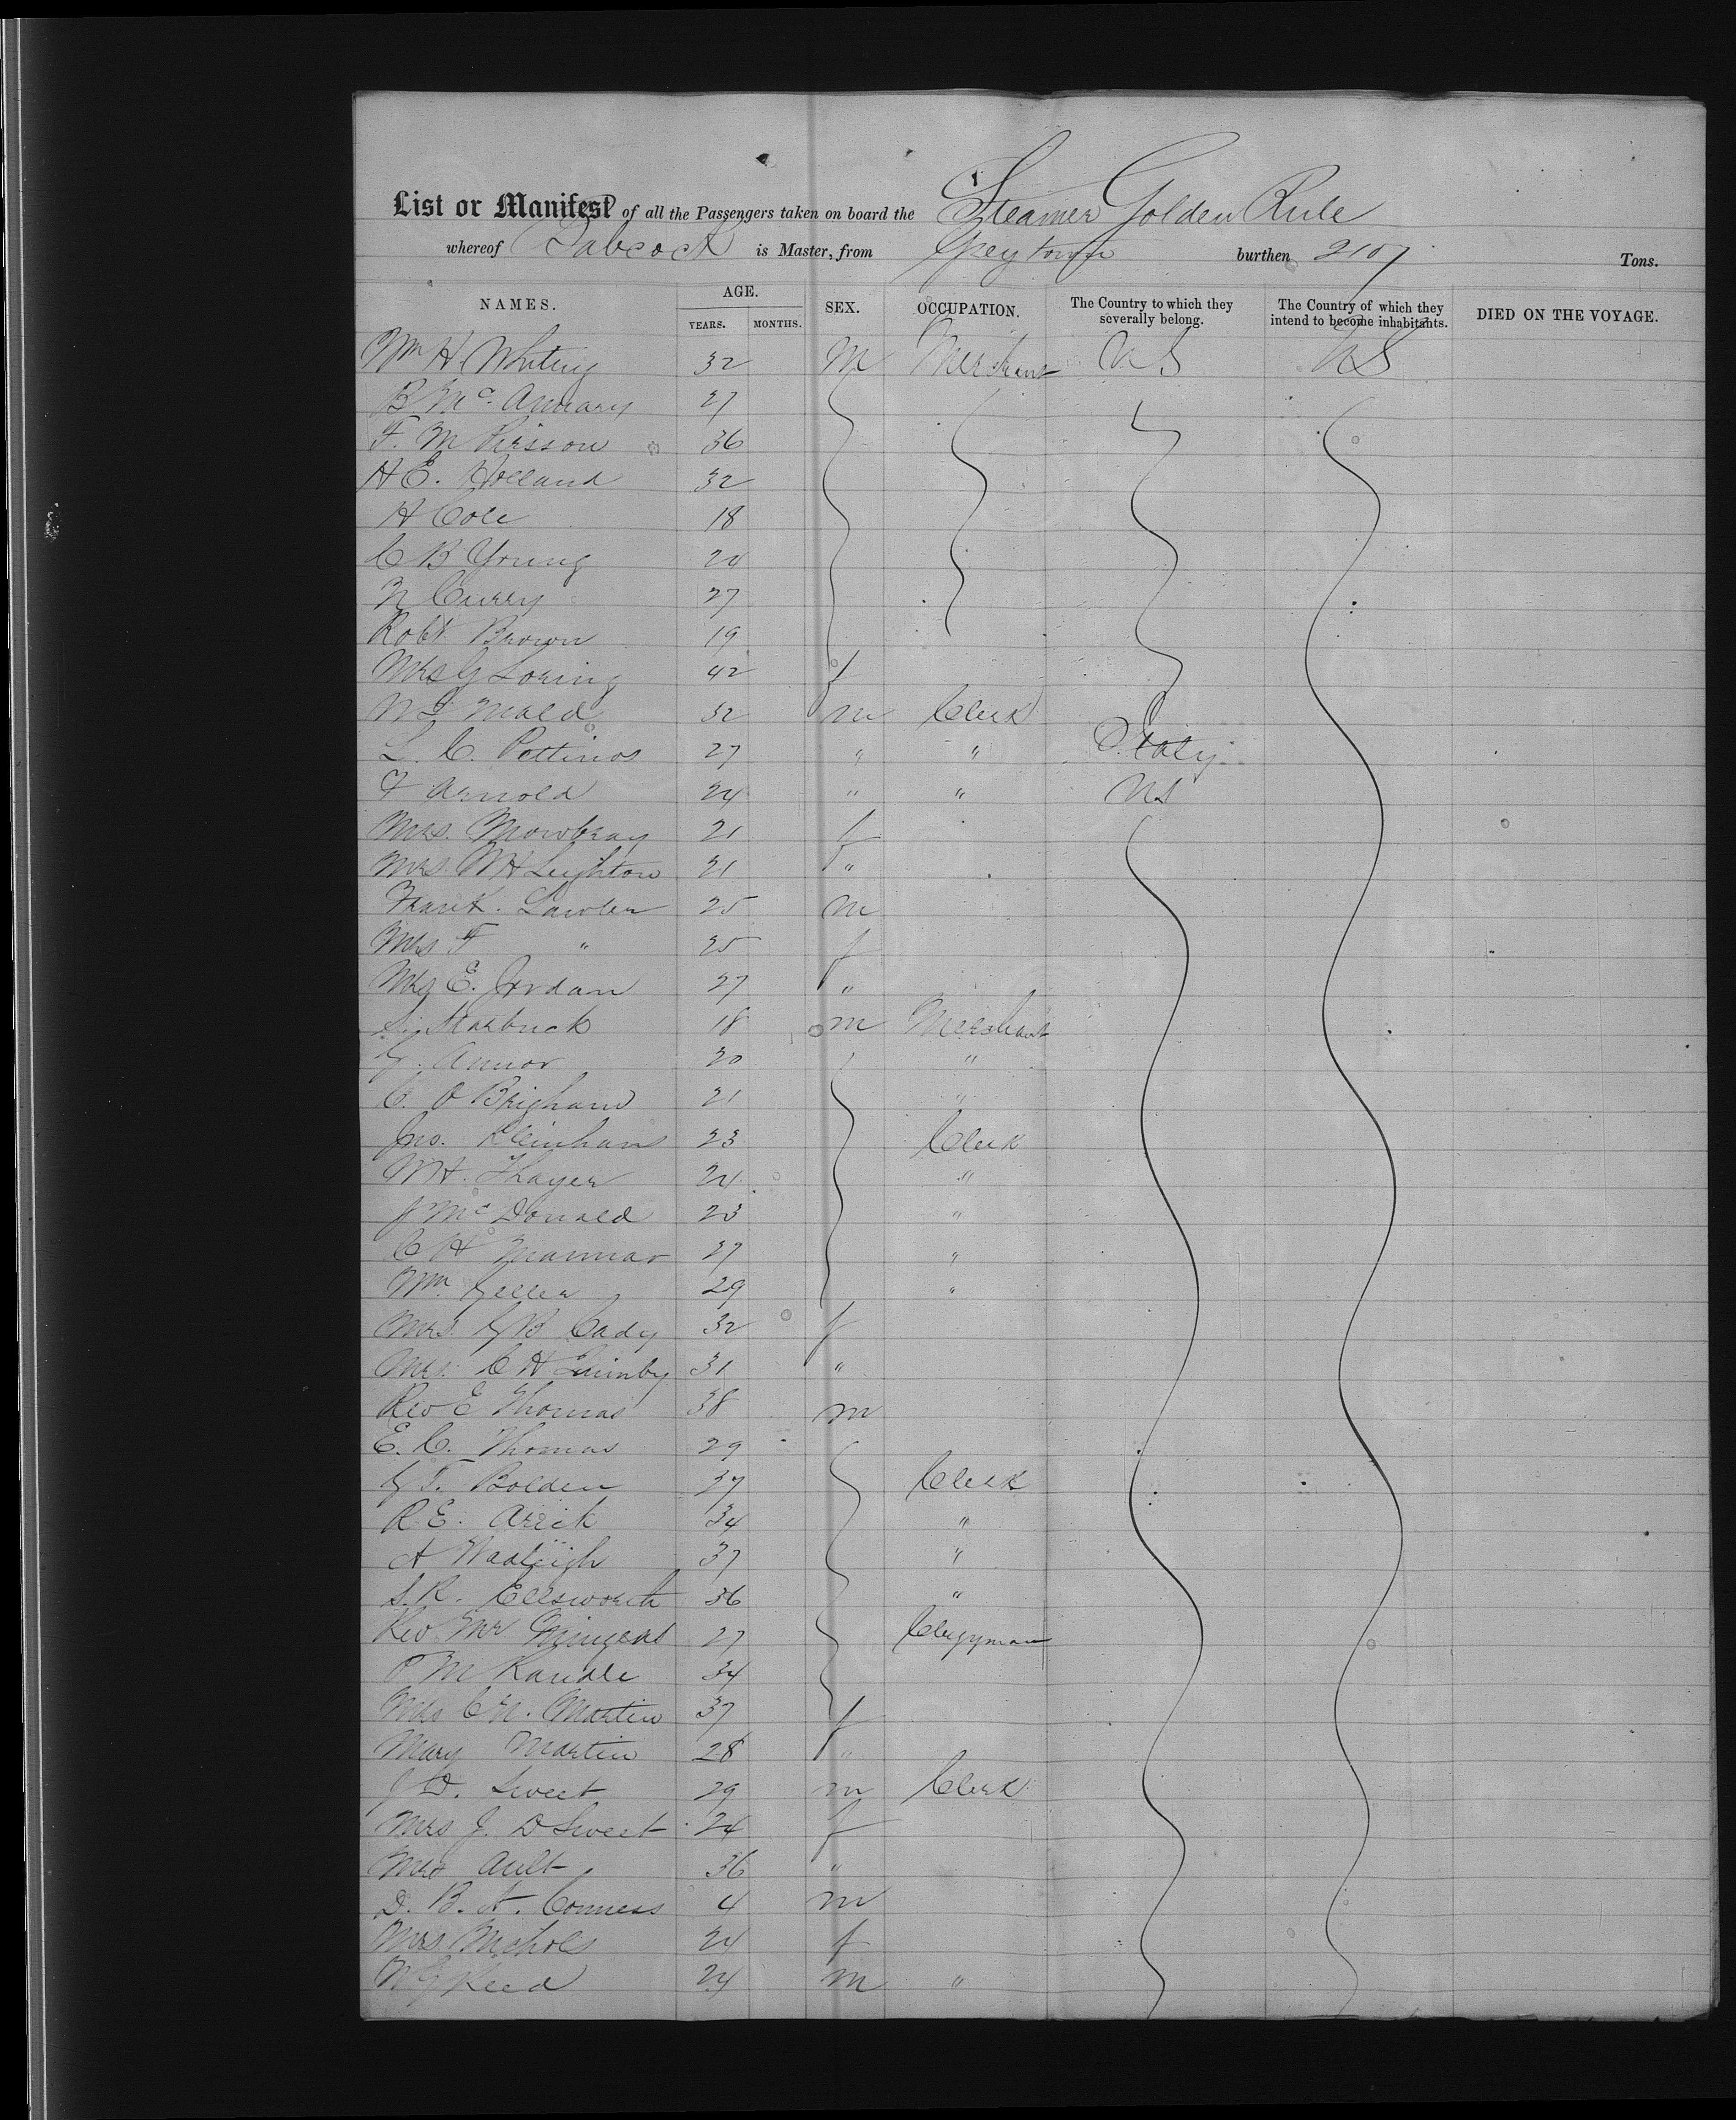 List or Manifest of all the Passengers taken on board the Steamer Golden Rule
whereof Babcock is Master, from Greytown burthen 2107 Tons.
NAMES. AGE. YEARS. MONTHS. SEX. OCCUPATION. The Country to which they severally belong. The Country of which they intend to become inhabitants. DIED ON THE VOYAGE.
Wm H Whiting 32 M Merchant US US
B Mc 27
F. M 36
H E. Holland 32
H Cole 18
C B Young 24
N Curry 27
Robt Brown 19
Mrs G Loring 42 f
32 m Clerk
L. C. Pettinos 27 " " Italy
F Arnold 24 " " US
Mrs. Mowbray 21 f
Mrs. W H Leighton 21 "
Frank Lawler 25 m
Mrs F " 25 f
Mrs E. Jordan 27 "
Starbuck 18 m Merchant
G. 30 "
C. O Brigham 21 "
Jno. Kleinhans 23 Clerk
W H. Thayer 24 "
J Mc Donald 23 "
C H 27 "
Wm. 29 "
Mrs. G B Cady 32 f
Mrs. C H Quimby 31 "
Rev E Thomas 38 m
E. C. Thomas 29
G T. Bolden 37 Clerk
R. E. Arick 34 "
A Wadleigh 37 "
S. R. Ellsworth 36 "
Rev Mr 27 Clergyman
P M Randle 34
Mrs C N. Martin 37 f
Mary Martin 28 "
J D. Sweet 29 m Clerk
Mrs J. D Sweet 24 f
Mrs Ault 36 "
D. B. A. Conness 4 m
Mrs Nichols 24 f
W G Reed 24 m "